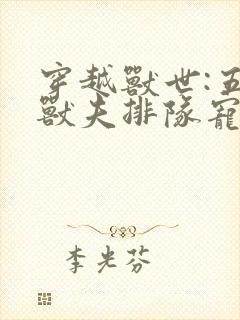 穿越獸世:五
獸夫排隊寵
李光芬